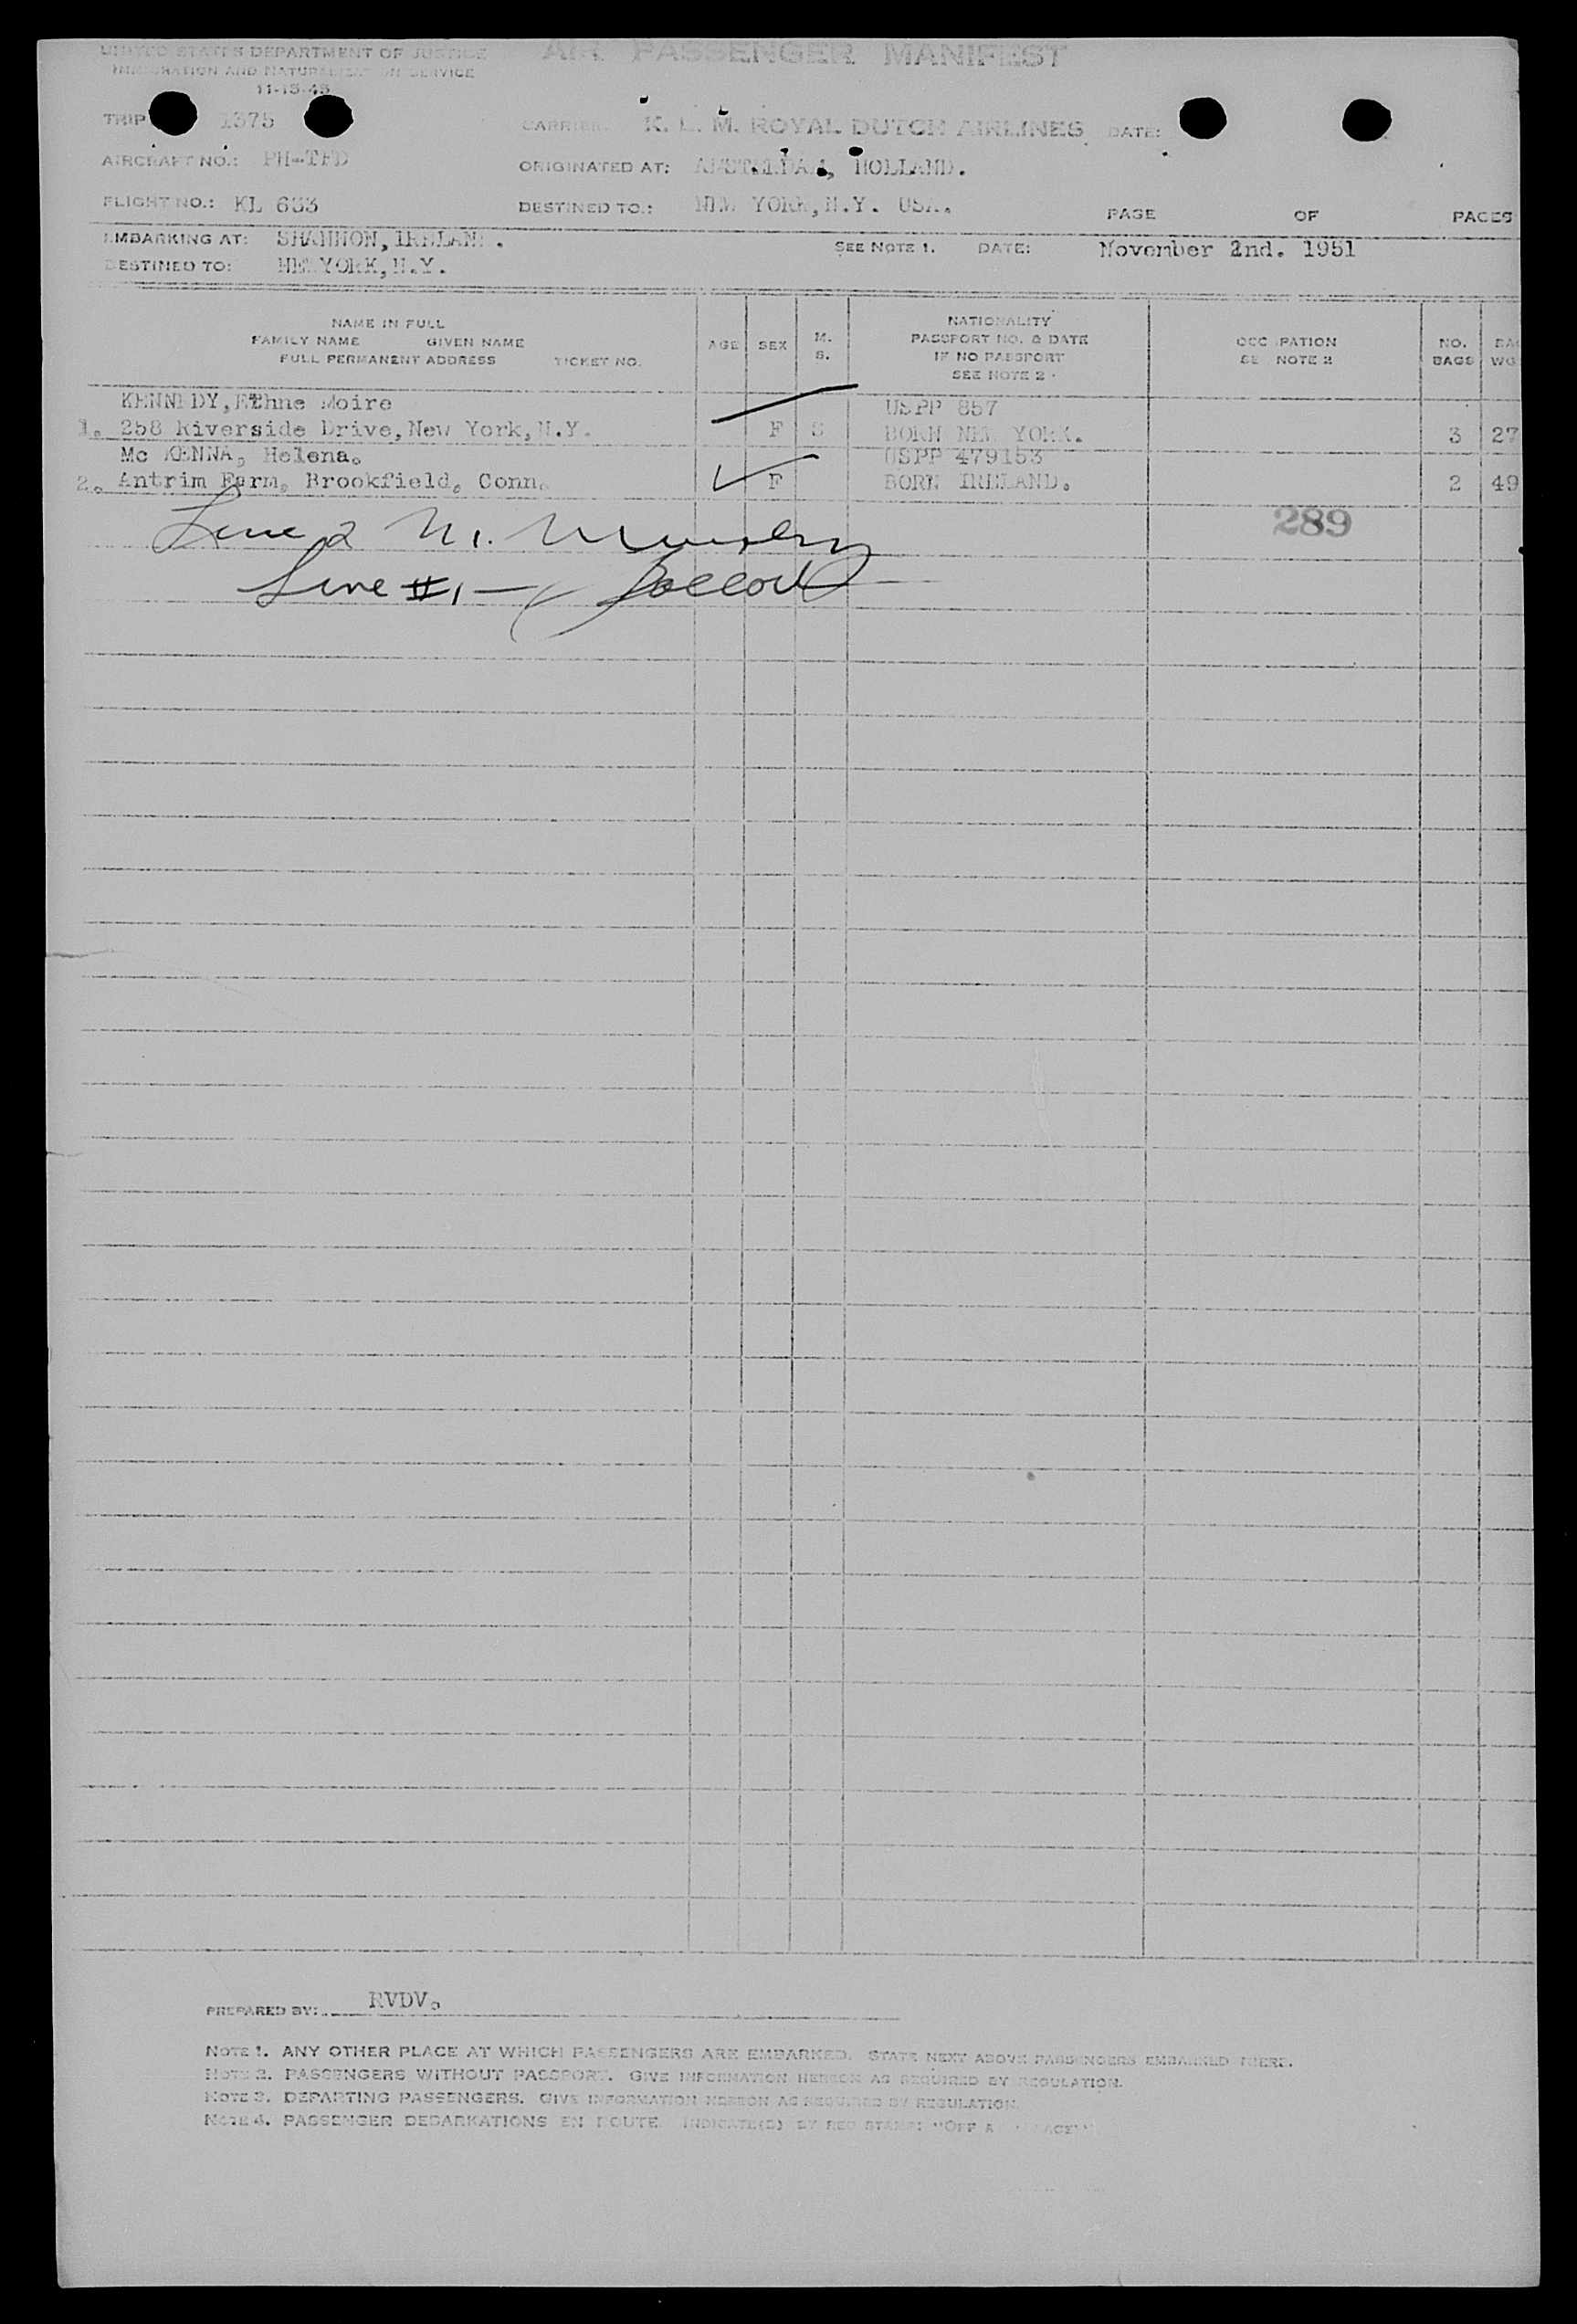 UNITED STATES DEPARTMENT OF JUSTICE
IMMIGRATION AND NATURALIZATION SERVICE
11-15-45
AIR PASSENGER MANIFEST
TRIP 1375
CARRIER: K. L. M. ROYAL DUTCH AIRLINES DATE:
AIRCRAFT NO.: PH-TFD
ORIGINATED AT: AMSTERDAM, HOLLAND.
FLIGHT NO.: KL 633
DESTINED TO.: NEW YORK, N.Y. USA.
PAGE OF PAGES
EMBARKING AT: SHANNON, IRELAND.
SEE NOTE 1. DATE: November 2nd. 1951
DESTINED TO: NEW YORK, N.Y.
NAME IN FULL
FAMILY NAME GIVEN NAME
FULL PERMANENT ADDRESS TICKET NO.
AGE SEX M. S.
NATIONALITY
PASSPORT NO. & DATE
IF NO PASSPORT
SEE NOTE 2
OCC PATION
SE NOTE 2
NO. BAGS
BA WG
KENNEDY, Ethne Moire USPP 857
1. 258 Riverside Drive, New York, N.Y. F S BORN NEW YORK. 3 27
Mc KENNA, Helena. USPP 479153
2. Antrim Farm, Brookfield, Conn. F BORN IRELAND. 2 49
289
Line 2 M.
Line #1 —
PREPARED BY: RVDV.
NOTE 1. ANY OTHER PLACE AT WHICH PASSENGERS ARE EMBARKED. STATE NEXT ABOVE PASSENGERS EMBARKED THERE.
NOTE 2. PASSENGERS WITHOUT PASSPORT. GIVE INFORMATION HEREON AS REQUIRED BY REGULATION.
NOTE 3. DEPARTING PASSENGERS. GIVE INFORMATION HEREON AS REQUIRED BY REGULATION.
NOTE 4. PASSENGER DEBARKATIONS EN ROUTE INDICATE(D) BY RED STAMP: "OFF A PLACE"